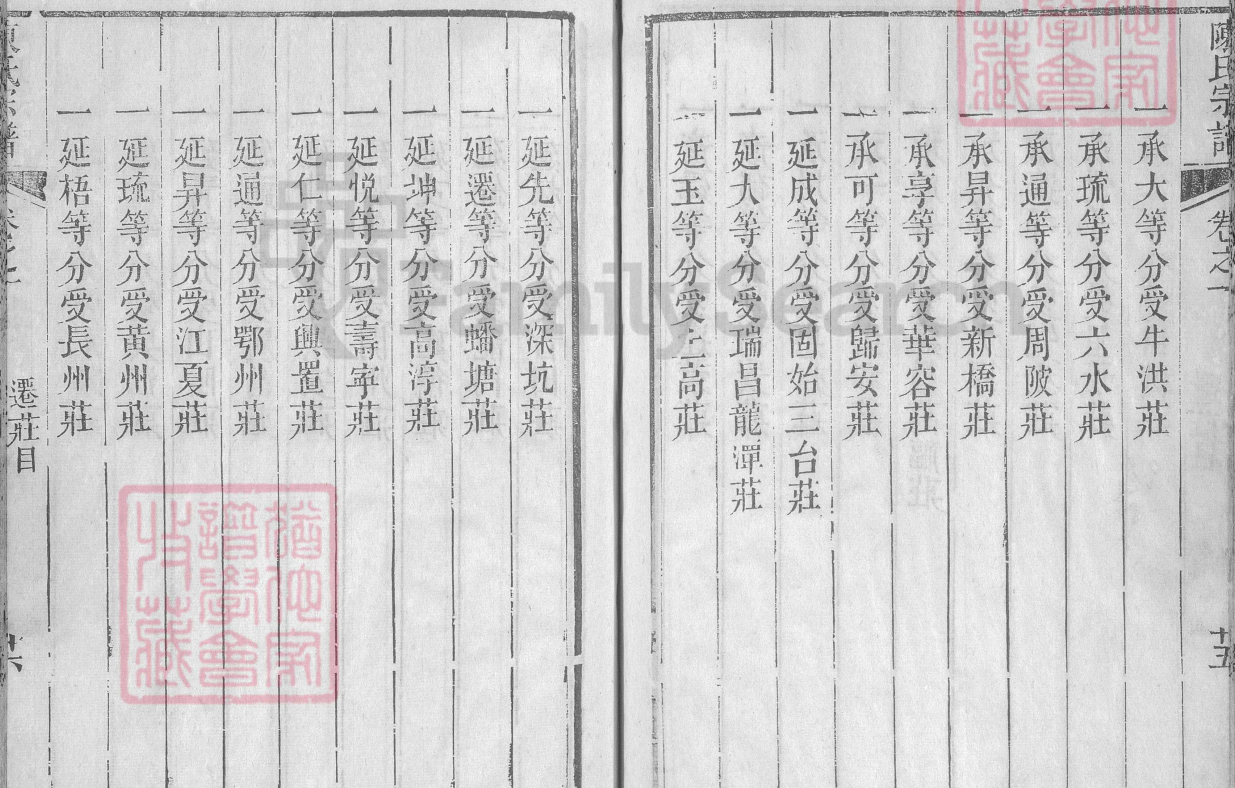 陳氏宗譜 卷之一 廿五
一承大等分受牛洪莊
一承琉等分受六水莊
一承通等分受周陂莊
一承昇等分受新橋莊
一承享等分受華容莊
一承可等分受歸安莊
一延成等分受固始三台莊
一延大等分受瑞昌龍潭莊
一延玉等分受上高莊
一延先等分受深坑莊
一延遷等分受蟠塘莊
一延坤等分受高淳莊
一延悦等分受壽寜莊
一延仁等分受興置莊
一延通等分受鄂州莊
一延昇等分受江夏莊
一延琉等分受黄州莊
一延梧等分受長州莊
氏宗譜 卷之一 遷莊目 廿六
譜學會
收藏
FamilySearch